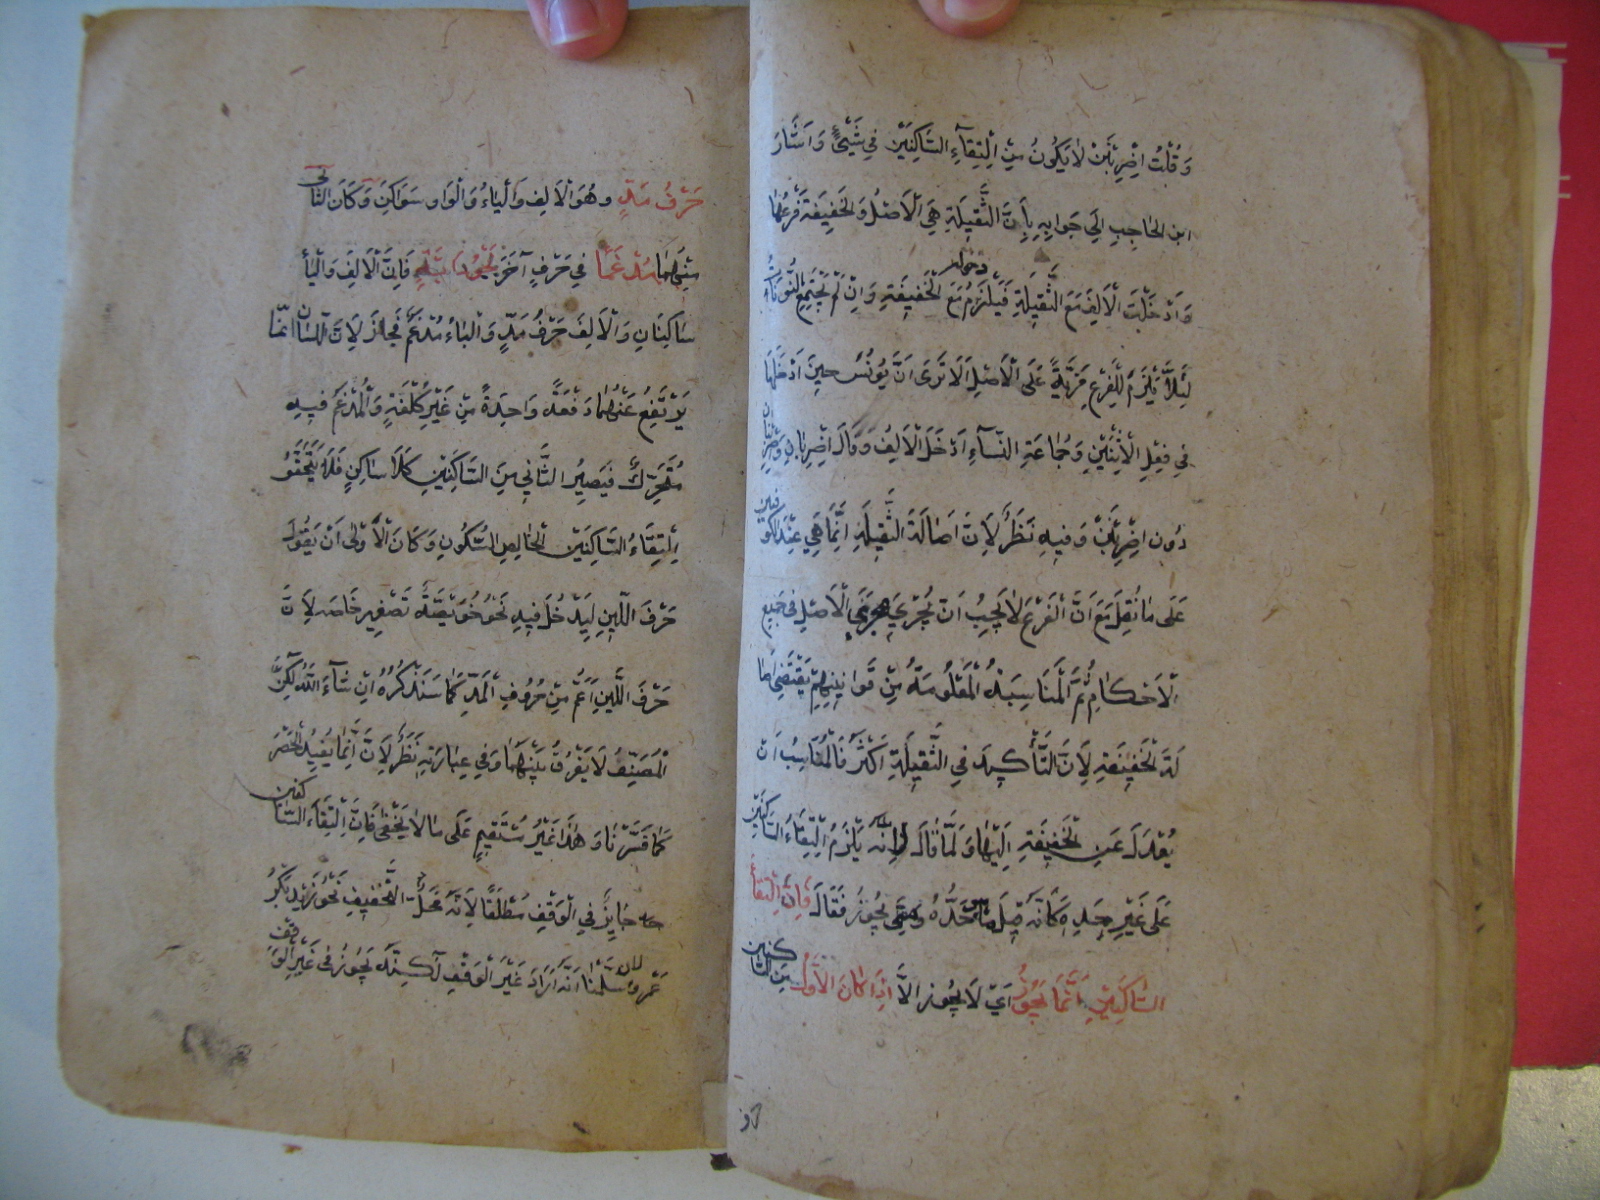 وَقُلْتُ اِضْرِبَنْ لَا يَكُونُ مِنَ الْتِقَاءِ السَّاكِنَيْنِ فِي شَيْءٍ وَاَشَارَ
ابن الحاجب اِلَى جَوَابِهِ بِاَنَّ الثَّقِيلَةَ هِيَ الْاَصْلُ وَالْخَفِيفَةَ فَرْعُهَا
وَاُدْخِلَتِ الْاَلِفُ مَعَ الثَّقِيلَةِ فَيَلْزَمُ دخولها مَعَ الْخَفِيفَةِ وَاِنْ لَمْ تَجْتَمِعِ النُّونَاتُ
لِئَلَّا يَلْزَمَ لِلْفَرْعِ مَزِيَّةٌ عَلَى الْاَصْلِ اَلَا تَرَى اَنَّ يُونُسَ حِينَ اَدْخَلَهَا
فِي فِعْلِ الْاِثْنَيْنِ وَجَمَاعَةِ النِّسَاءِ اَدْخَلَ الْاَلِفَ وَقَالَ اضْرِبَانِ وَاضْرِبْنَانْ
دُونَ اضْرِبْنَنْ وَفِيهِ نَظَرٌ لِاَنَّ اَصَالَةَ الثَّقِيلَةِ اِنَّمَا هِيَ عِنْدَ الْكُوفِيِّينَ
عَلَى مَا نُقِلَ مَعَ اَنَّ الْفَرْعَ لَا يَجِبُ اَنْ يُجْرَيَ مَجْرَى الْاَصْلِ فِي جَمِيعِ
الْاَحْكَامِ ثُمَّ الْمُنَاسَبَةُ الْمَعْلُومَةُ مِنْ قَوَانِينِهِمْ يَقْتَضِي
لَةَ الْخَفِيفَةِ لِاَنَّ التَّأْكِيدَ فِي الثَّقِيلَةِ اَكْثَرُ فَالْمُنَاسِبُ اَنْ
يُعْدَلَ عَنِ الْخَفِيفَةِ اِلَيْهَا وَلَمَّا قَالَ لِاَنَّهُ يَلْزَمُ الْتِقَاءُ السَّاكِنَيْنِ
عَلَى غَيْرِ حَدِّهِ كَاَنَّهُ قِيلَ مَا هو حَدُّهُ وَمَتَى يَجُوزُ فَقَالَ فَاِنَّ الْتِقَاءَ
السَّاكِنَيْنِ اِنَّمَا يَجُوزُ اَيْ لَا يَجُوزُ اِلَّا اِذَا كَانَ الْاَوَّلُ مِنَ السَّاكنين
حَرْفَ مَدٍّ وَهُوَ الْاَلِفُ وَالْيَاءُ وَالْوَاوُ سَوَاكِنَ وَكَانَ الثَّانِي
مِنْهُمَا مُدْغَمًا فِي حَرْفٍ آخَرَ نَحْوُ دَابَّةٍ فَاِنَّ الْاَلِفَ وَالْبَاءَ
سَاكِنَانِ وَالْاَلِفَ حَرْفُ مَدٍّ وَالْبَاءُ مُدْغَمٌ فَجَازَ لِاَنَّ اللِّسَانَ اِنَّمَا
يَرْتَفِعُ عَنْهُمَا دَفْعَةً وَاحِدَةً مِنْ غَيْرِ كُلْفَةٍ وَالْمُدْغَمُ فِيهِ
مُتَحَرِّكٌ فَيَصِيرُ الثَّانِي مِنَ السَّاكِنَيْنِ كَلَا سَاكِنٍ فَلَا يَتَحَقَّقُ
اِلْتِقَاءُ السَّاكِنَيْنِ الْخَالِصِ السُّكُونِ وَكَانَ الْاَوْلَى اَنْ يَقُولَ
حَرْفَ اللِّينِ لِيَدْخُلَ فِيهِ نَحْوُ خُوَيْصَّةٌ تَصْغِيرُ خَاصَّه لِاَنَّ
حَرْفَ اللِّينِ اَعَمُّ مِنْ حُرُوفِ الْمَدِّ كَمَا سَنَذْكُرُهُ اِنْ شَاءَ اللّٰهُ لٰكِنَّ
الْمُصَنِّفَ لَا يَفْرُقُ بَيْنَهُمَا وَفِي عِبَارَتِهِ نَظَرٌ لِاَنَّ اِنَّمَا يُفِيدُ الْحَصْرَ
كَمَا فَسَّرْنَا وَهٰذَا غَيْرُ مُسْتَقِيمٍ عَلَى مَا لَا يَخْفَى فَاِنَّ اِلْتِقَاءَ السَّاكنين
جَائِزٌ فِي الْوَقْفِ مُطْلَقًا لِاَنَّهُ مَحَلُّ التَّخْفِيفِ نَحْوُ زَيْدْ بَكْرْ
عَمْرو سَلَّمْنَا اَنَّهُ اَرَادَ غَيْرَ الْوَقْفِ لٰكِنَّهُ يَجُوزُ فِي غَيْرِ الْوَقف